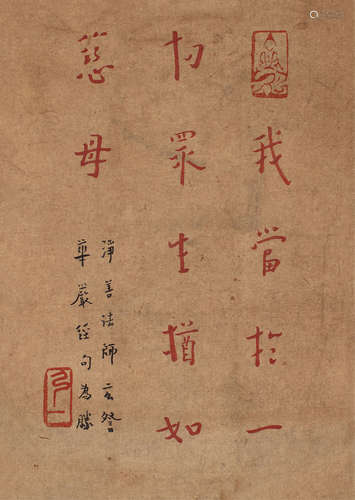 我當於一
切眾生猶如
慈母
淨善法師玄詧
華嚴經句為勝